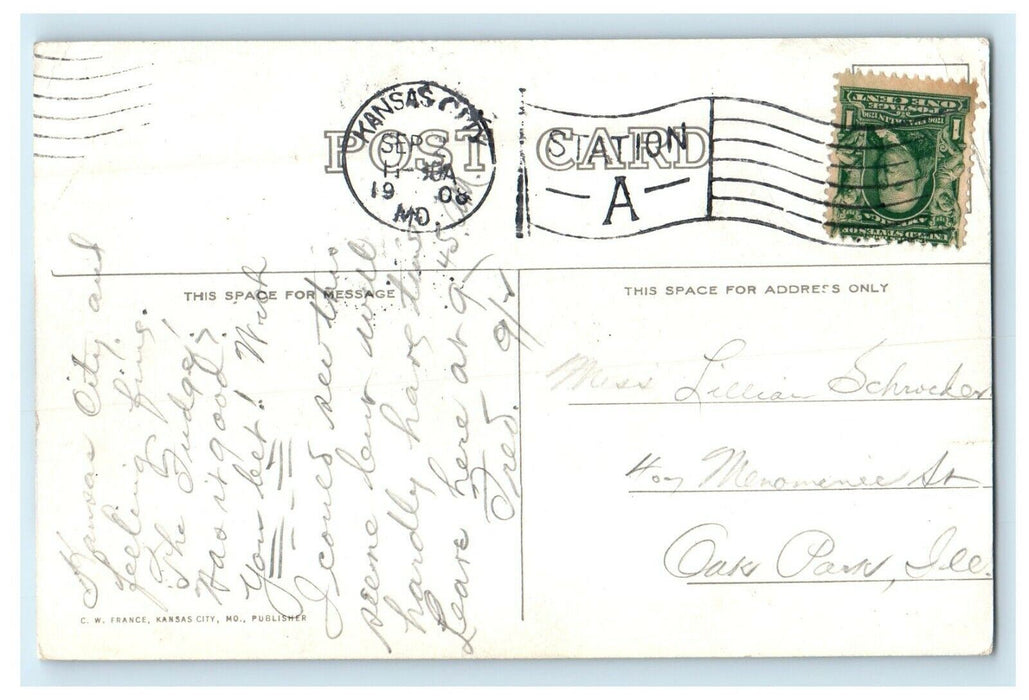 POST CARD
KANSAS CITY
SEP
11-30A
19 08
MO.
STATION
A
ONE CENT
1 1
THIS SPACE FOR MESSAGE
THIS SPACE FOR ADDRESS ONLY
Kansas City and
feeling fine.
The Fudge!
Was it good?
You bet! Wish
I could see this
scene but will
hardly have time
Leave here at 9.45
Fred.
9/5
Miss Lillian Schrocker
407 Menominee St
Oak Park, Ill.
C. W. FRANCE, KANSAS CITY, MO., PUBLISHER